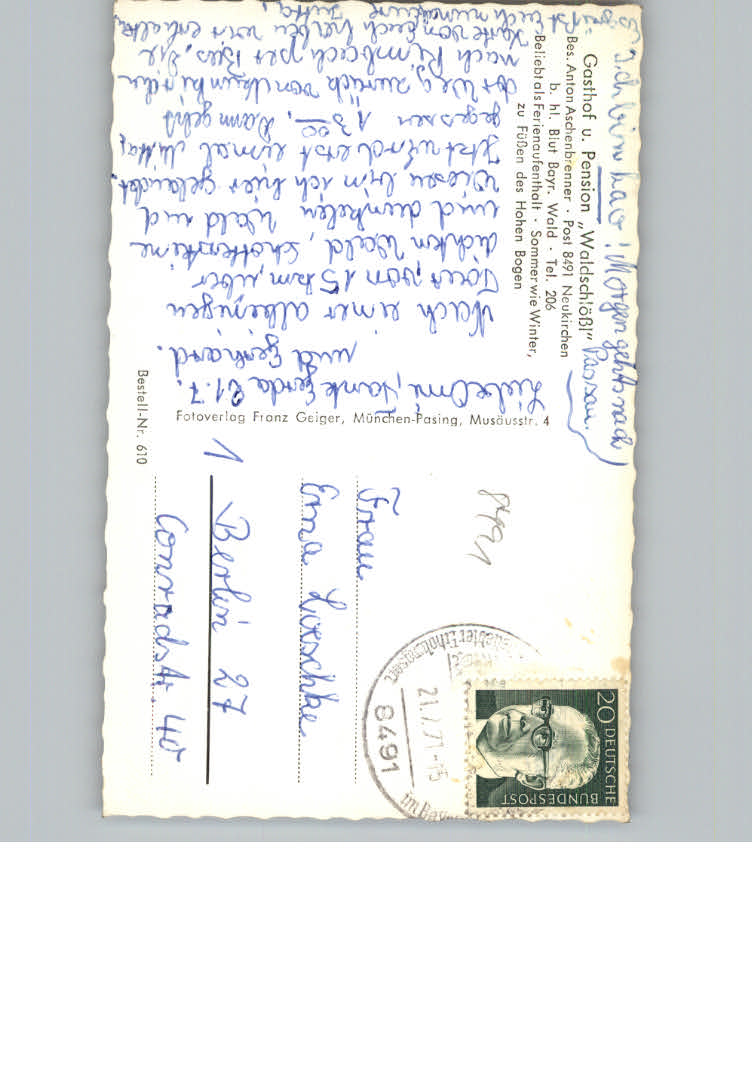 Gasthof u. Pension „Waldschlößl"
Bes. Anton Aschenbrenner · Post 8491 Neukirchen
b. hl. Blut Bayr. Wald · Tel. 206
Beliebt als Ferienaufenthalt · Sommer wie Winter,
zu Füßen des Hohen Bogen
21.7.
Liebe Omi, Tante Gerda
und Gerhard.
Nach einer
Tour, von 15 km, über
dichten Wald, Schottersteine
und dunkelen Wald und
Wiesen bin ich hier gelandet.
Jetzt wird erst einmal Mittag
gegessen 13 00. Dann geht
der Weg zurück von
nach Rimbach per
Karte von Euch haben wir erhalten.
Es grüßt Euch
Jutta,
Ich bin k.o.! Morgen gehts nach
Passau.
Fotoverlag Franz Geiger, München-Pasing, Musäusstr. 4
Bestell-Nr. 610
8491
Frau
Erna Loeschke
1 Berlin 27
Conradstr. 40
20 DEUTSCHE
BUNDESPOST
8491
21.7.71-15
im Bay